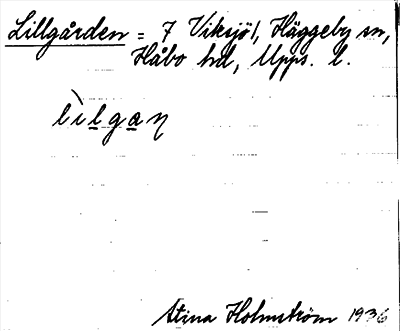 Lillgården = 7 Viksjö, Häggeby sn,
Håbo hd, Upps. l.
lìlgaṇ
Stina Holmström 1936